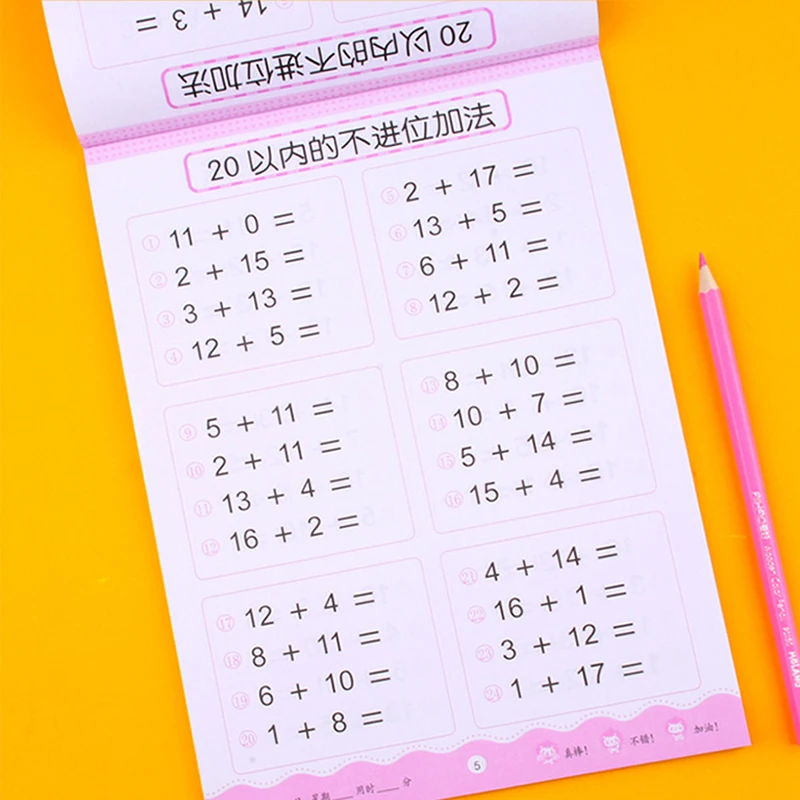 14 + 3 =
20 以内的不进位加法
20 以内的不进位加法
① 11 + 0 =
② 2 + 15 =
③ 3 + 13 =
④ 12 + 5 =
⑤ 2 + 17 =
⑥ 13 + 5 =
⑦ 6 + 11 =
⑧ 12 + 2 =
⑨ 5 + 11 =
⑩ 2 + 11 =
⑪ 13 + 4 =
⑫ 16 + 2 =
⑬ 8 + 10 =
⑭ 10 + 7 =
⑮ 5 + 14 =
⑯ 15 + 4 =
⑰ 12 + 4 =
⑱ 8 + 11 =
⑲ 6 + 10 =
⑳ 1 + 8 =
㉑ 4 + 14 =
㉒ 16 + 1 =
㉓ 3 + 12 =
㉔ 1 + 17 =
星期____ 用时____分
5
真棒!
不错!
加油!